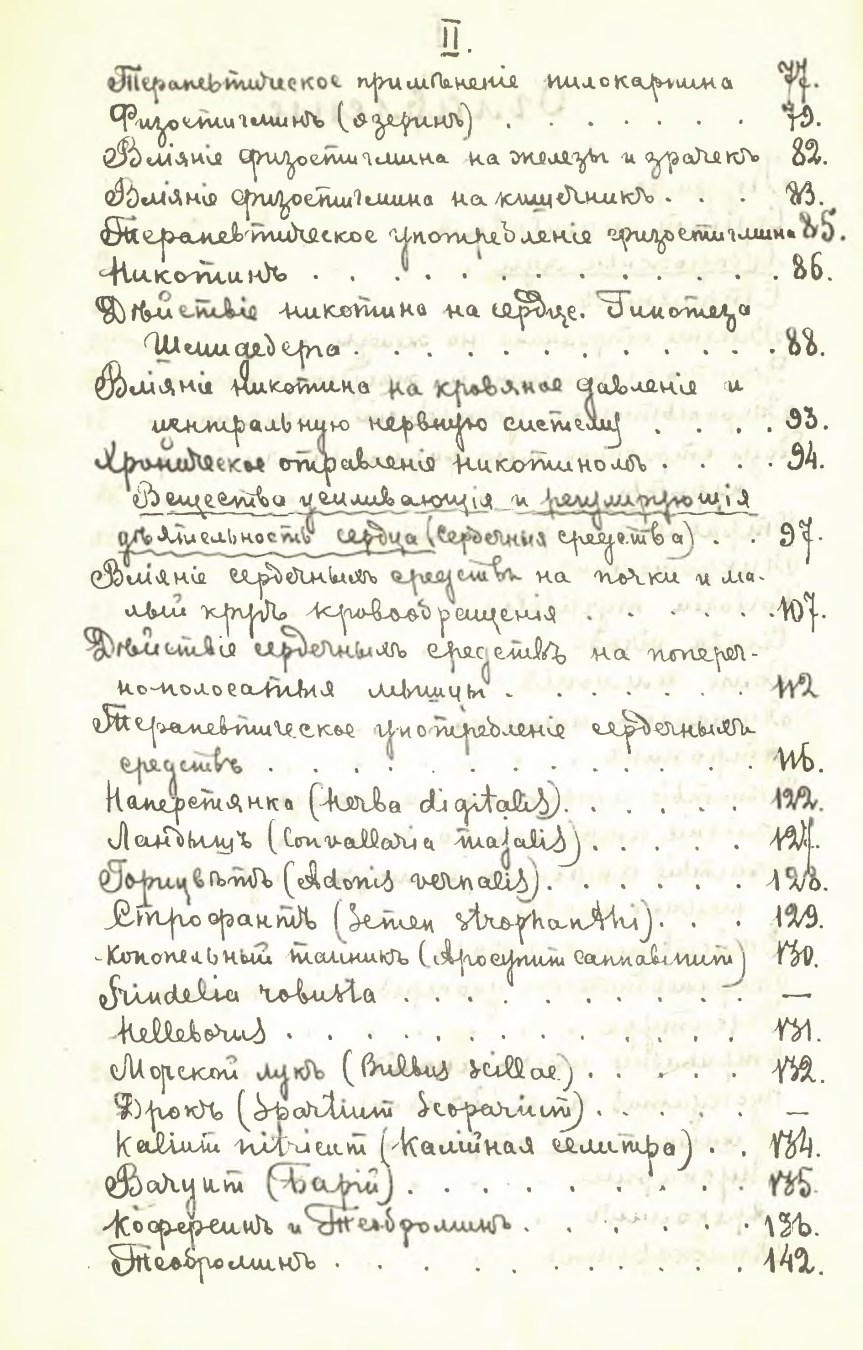 II.
Терапевтическое примѣненіе пилокарпина 77.
Физостигминъ (эзеринъ) . . . . . . . 79.
Вліяніе физостигмина на железы и зрачекъ 82.
Вліяніе физостигмина на кишечникъ . . . 83.
Терапевтическое употребленіе физостигмина 85.
Никотинъ . . . . . . . . . . . . . 86.
Дѣйствіе никотина на сердце. Гипотеза
Шмидеберга . . . . . . . . . . . . 88.
Вліяніе никотина на кровяное давленіе и
центральную нервную систему . . . . 93.
Хроническое отравленіе никотиномъ . . . . 94.
Вещества усиливающія и регулирующія
дѣятельность сердца (сердечныя средства) . . 97.
Вліяніе сердечныхъ средствъ на почки и ма-
лый кругъ кровообращенія . . . . . . . 107.
Дѣйствіе сердечныхъ средствъ на попереч-
но-полосатыя мышцы . . . . . . . 112
Терапевтическое употребленіе сердечныхъ
средствъ . . . . . . . . . . . . . 116.
Наперстянка (Herba digitalis) . . . . . . 122.
Ландышъ (Convallaria majalis) . . . . . 127.
Горицвѣтъ (Adonis vernalis) . . . . . . . 128.
Строфантъ (Semen strophanthi) . . . . 129.
Конопельный таинникъ (Apocynum cannabinum) 130.
Grindelia robusta . . . . . . . . . . —
Helleborus . . . . . . . . . . . . . 131.
Морской лукъ (Bulbus Scillae) . . . . . 132.
Дрокъ (Spartium Scoparium) . . . . . —
Kalium nitricum (Калійная селитра) . . 134.
Baryum (Барій) . . . . . . . . . . 135.
Кофеинъ и Теобромминъ . . . . . . . 136.
Теоброминъ . . . . . . . . . . . 142.